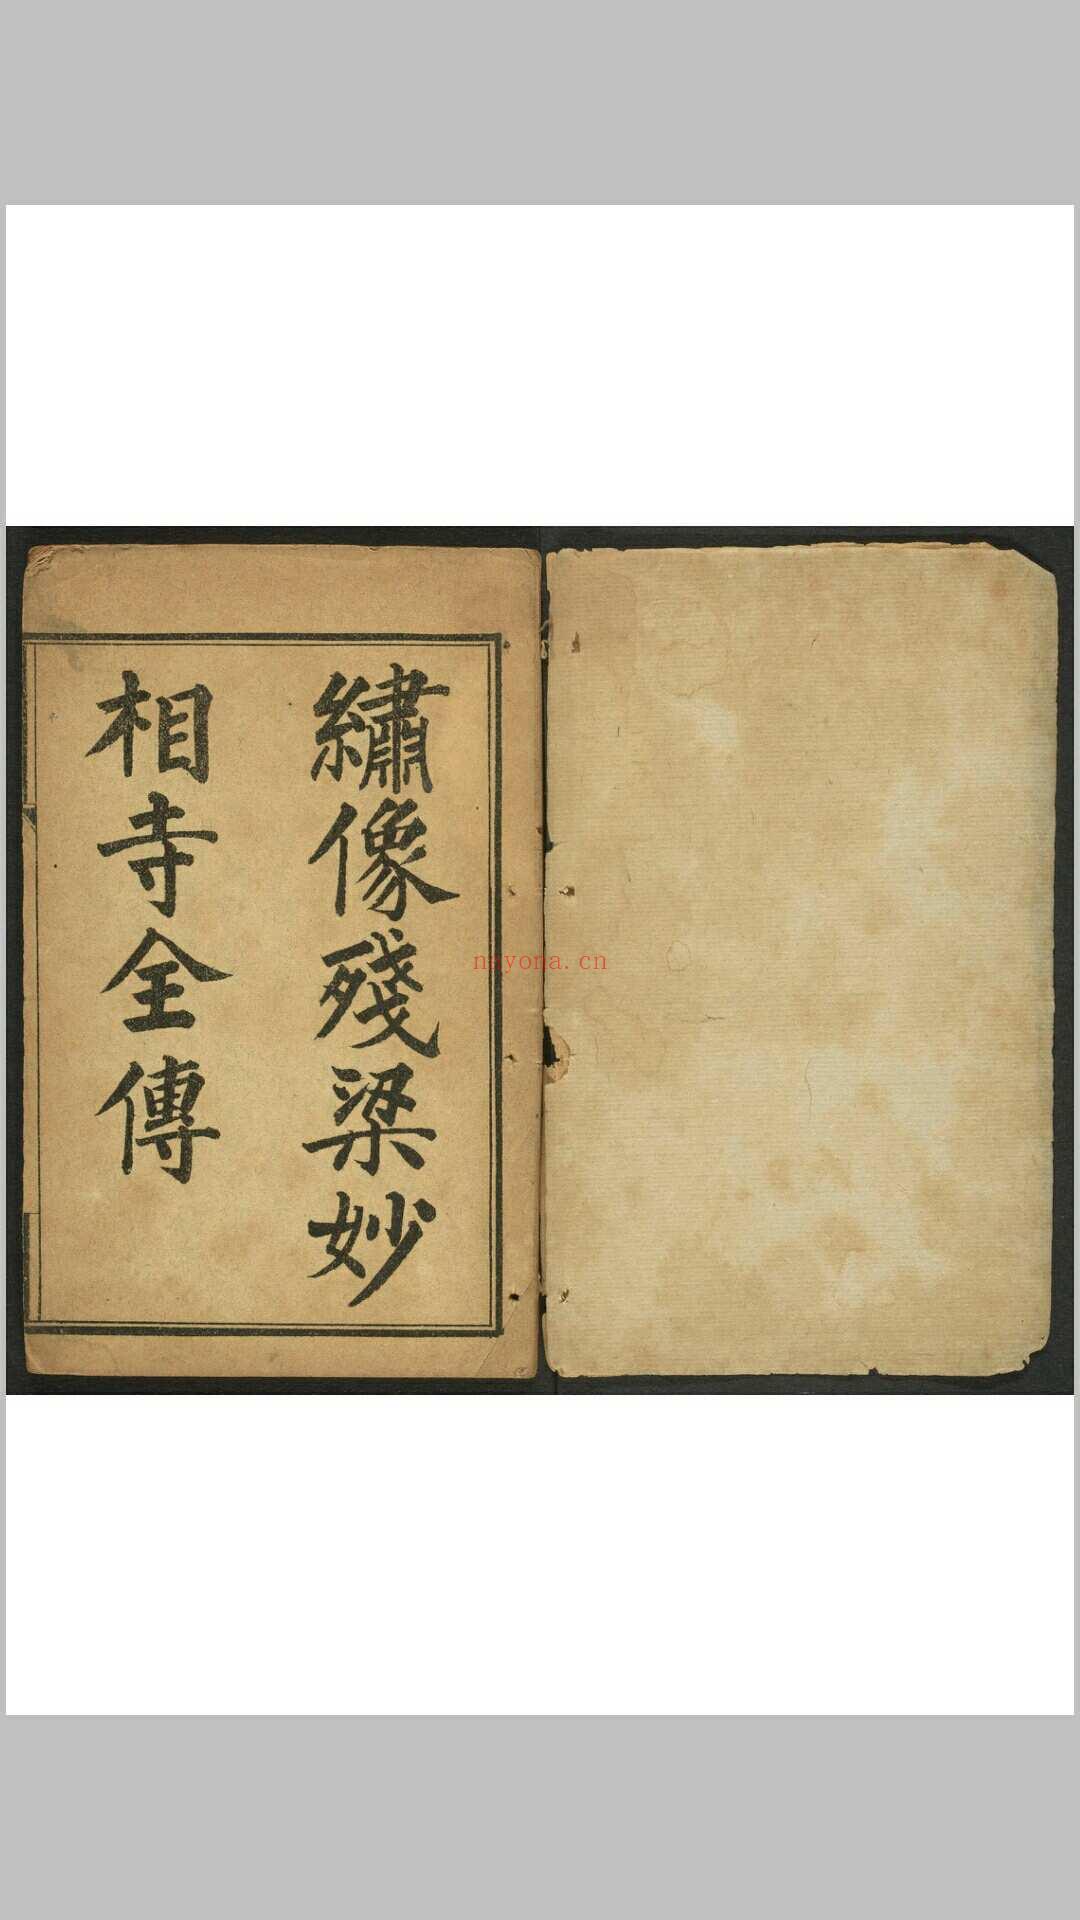 繡像殘梁妙
相寺全傳
nayona.cn